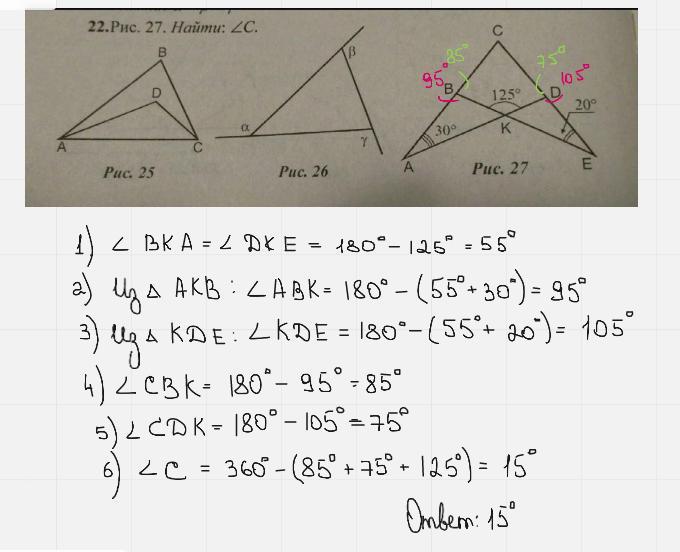 22.Рис. 27. Найти: ∠C.
B
D
A
C
Рис. 25
α
β
γ
Рис. 26
C
85°
75°
95°
105°
B
125°
D
20°
30°
K
A
E
Рис. 27
1) ∠ BKA = ∠ DKE = 180° - 125° = 55°
2) Из △ AKB : ∠ABK = 180° - (55° + 30°) = 95°
3) Из △ KDE : ∠KDE = 180° - (55° + 20°) = 105°
4) ∠CBK = 180° - 95° = 85°
5) ∠CDK = 180° - 105° = 75°
6) ∠C = 360° - (85° + 75° + 125°) = 15°
Ответ: 15°